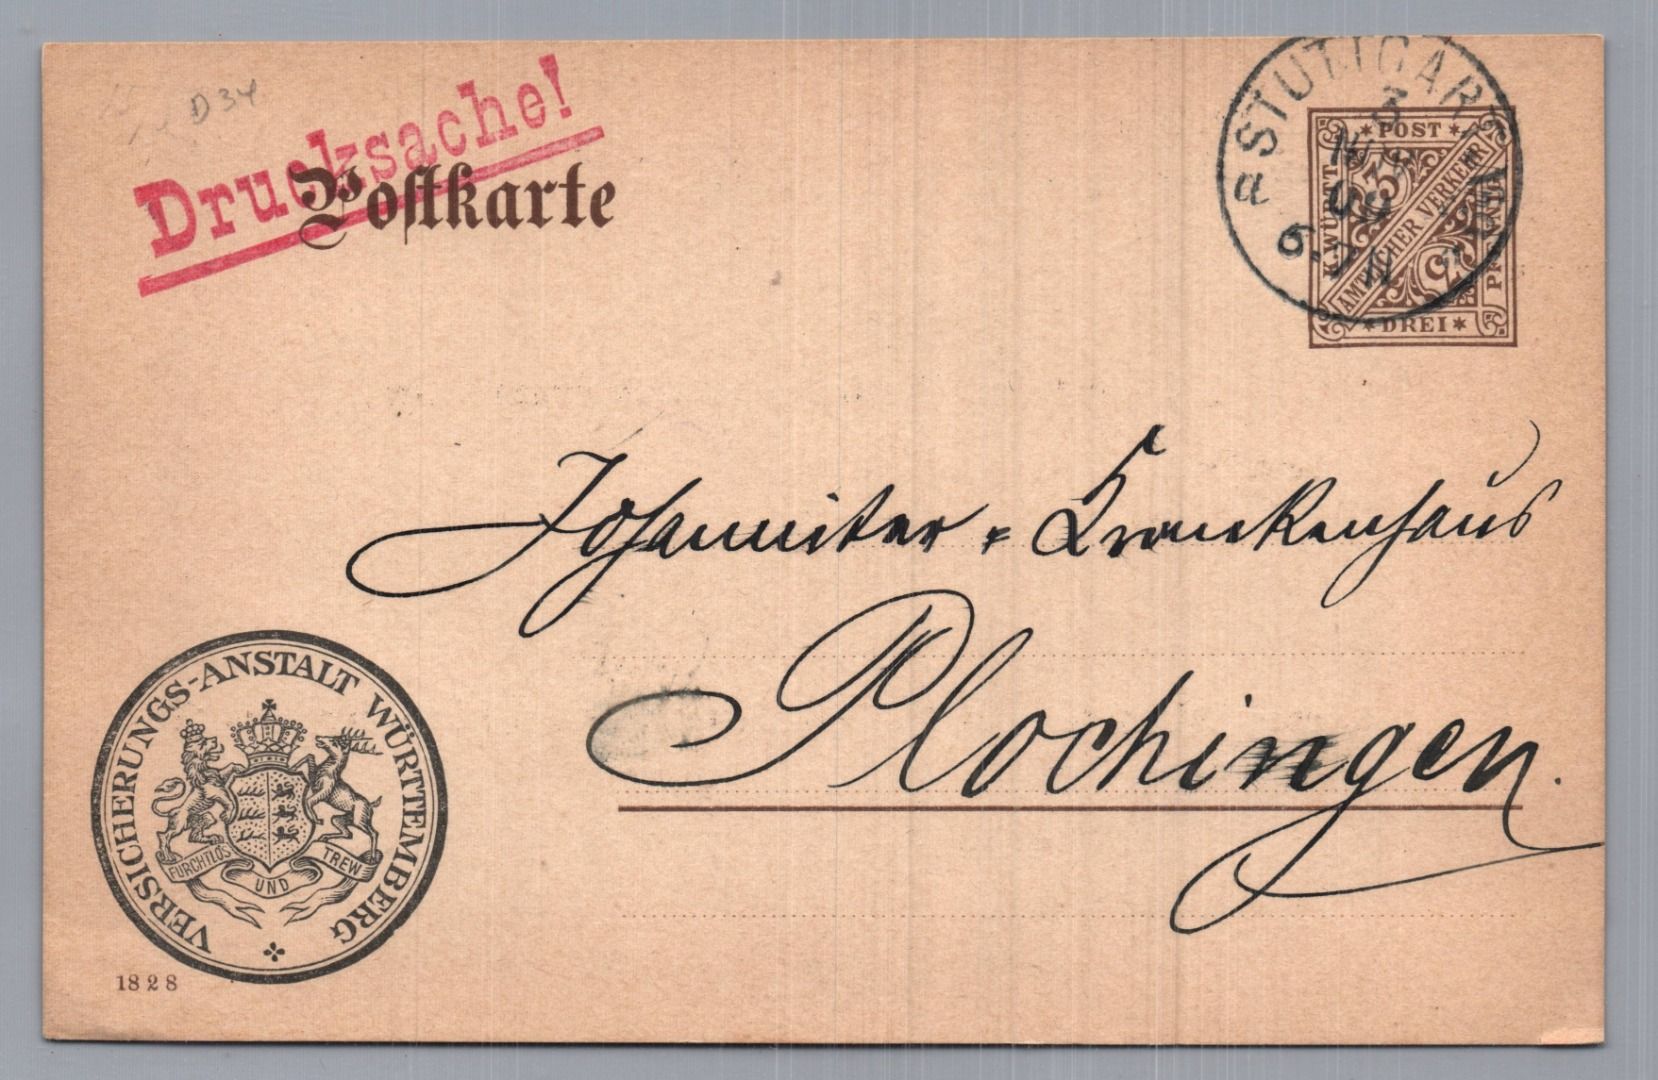 D34
Drucksache!
Postkarte
STUTTGART
3
09
a
6-7N
* POST *
K. WÜRTT.
AMTLICHER VERKEHR
PFENNIG
3
3
* DREI *
Johanniter = Krankenhaus
Plochingen.
VERSICHERUNGS-ANSTALT WÜRTTEMBERG
FURCHTLOS
UND
TREW
18 2 8